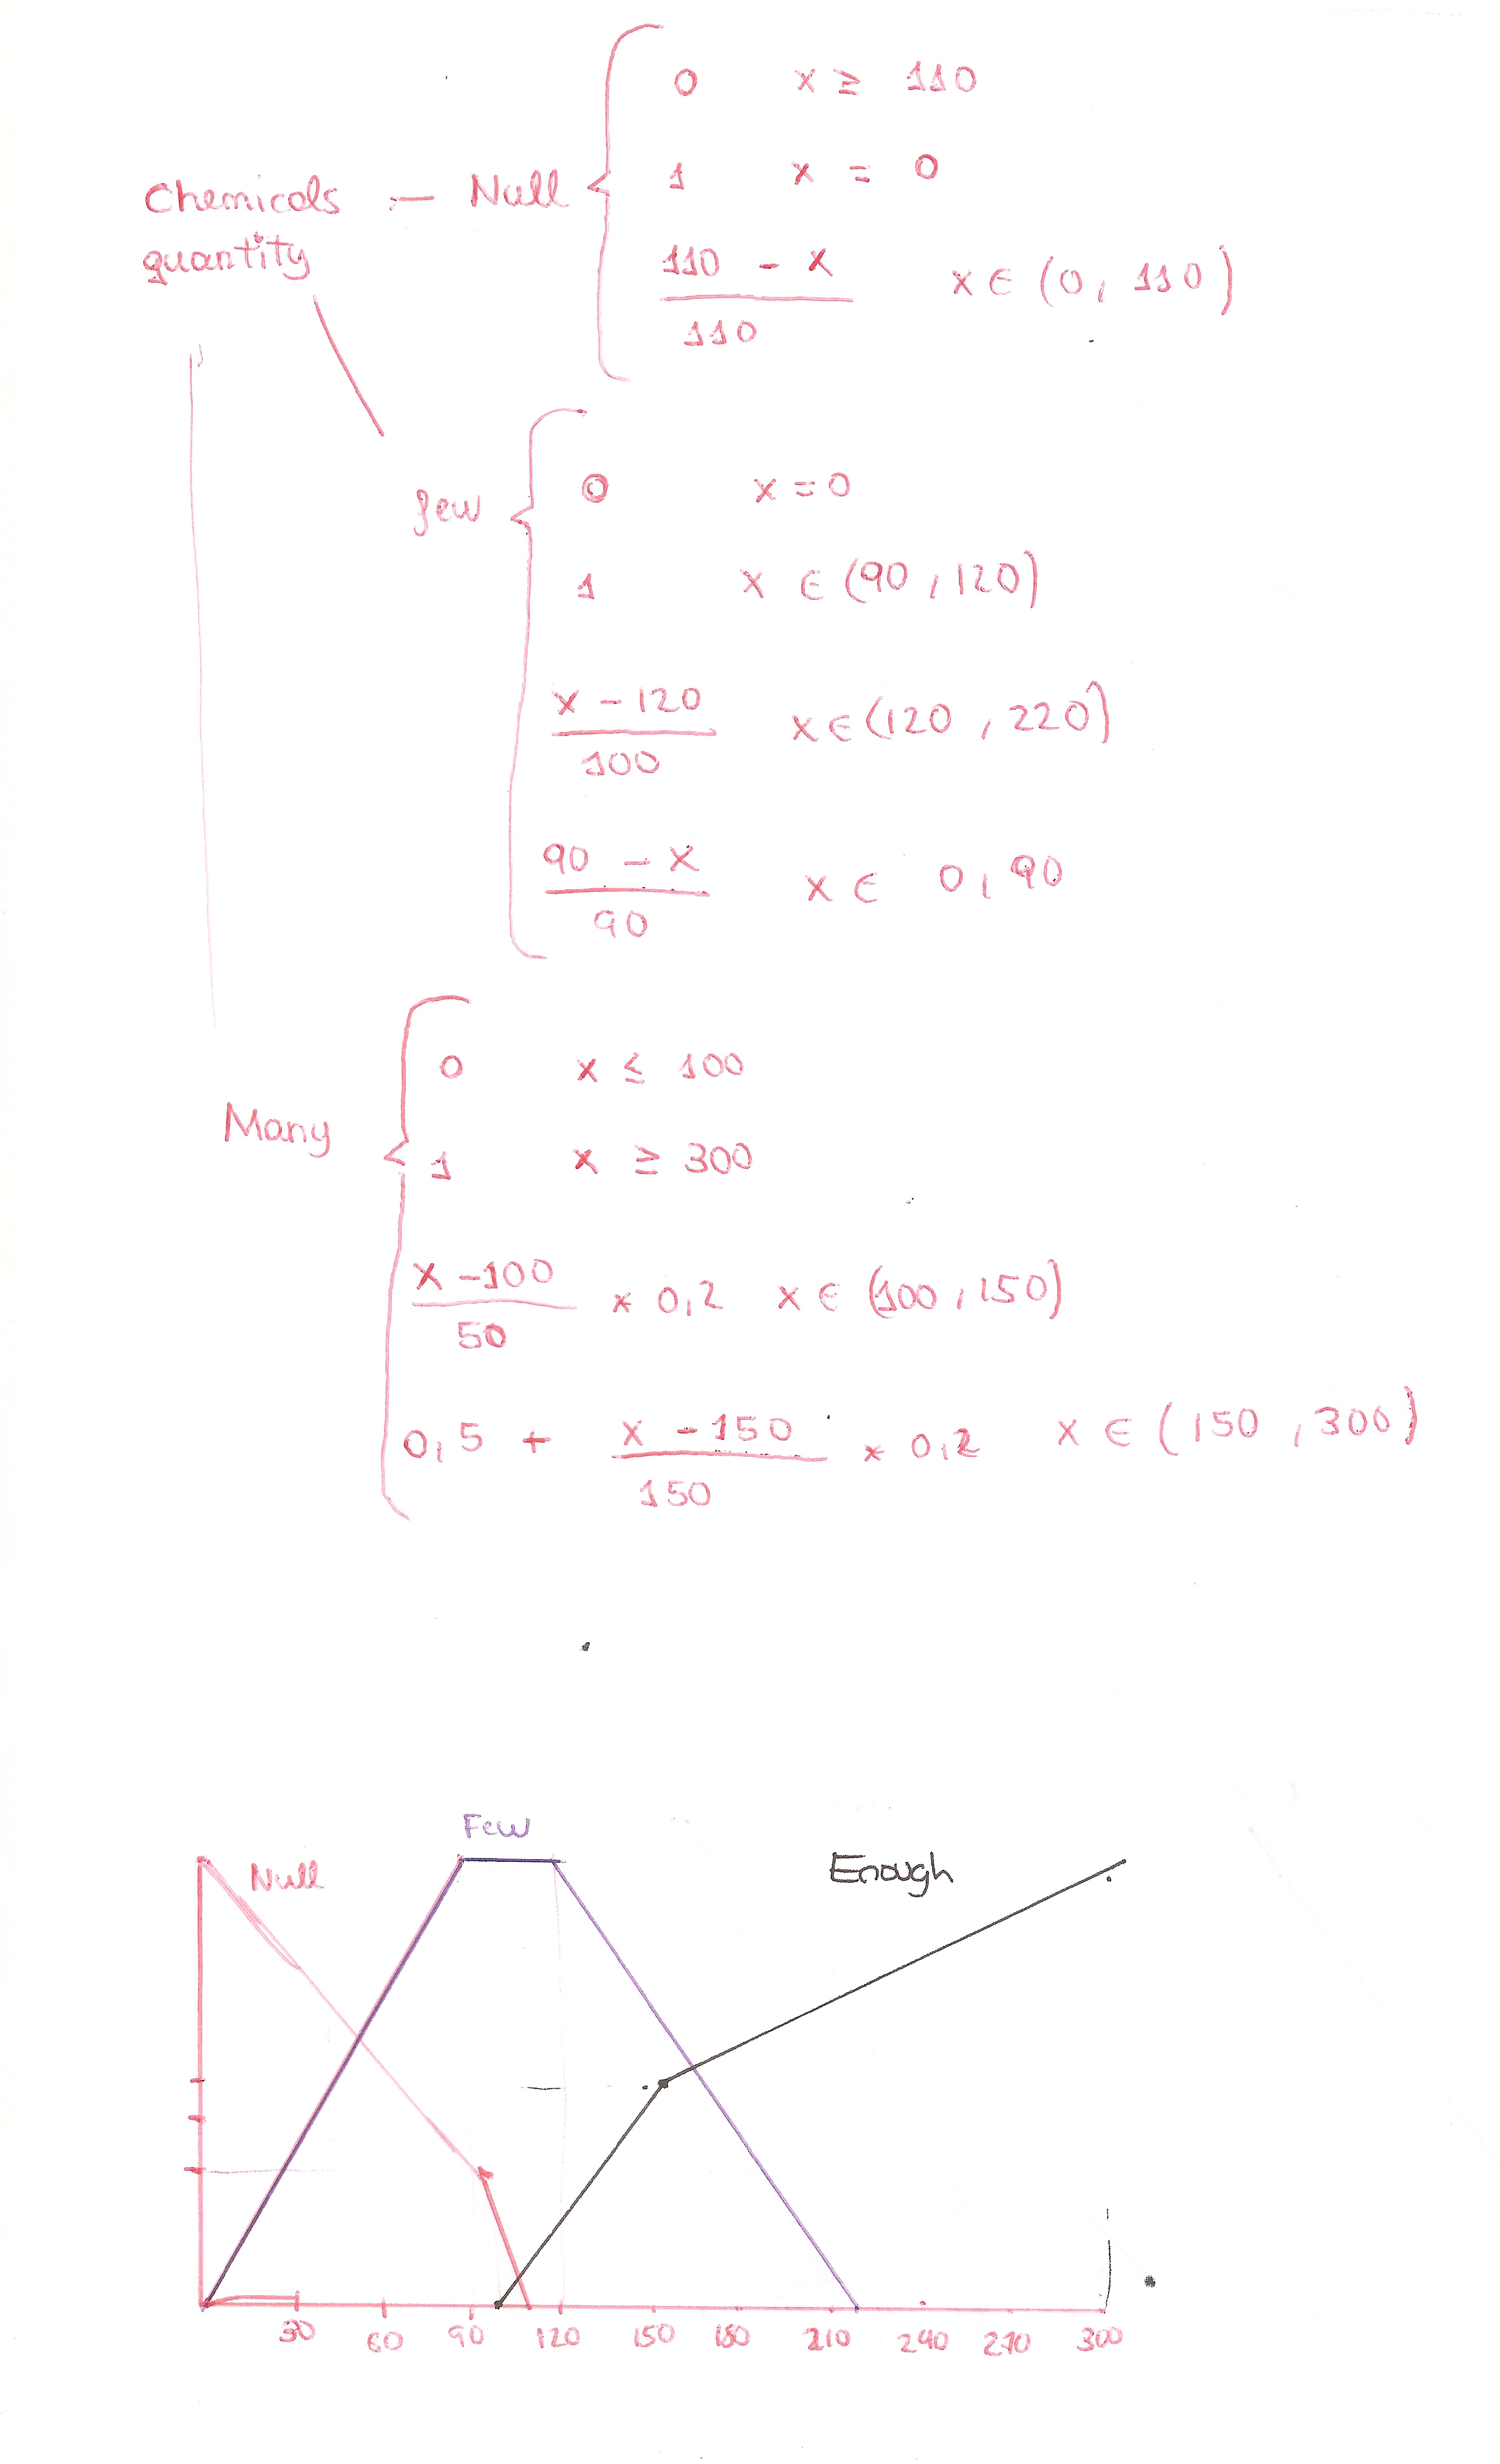 0 x ≥ 110
1 x = 0
Chemicals — Null
quantity
110 - x
110
x ∈ (0, 110)
few
0 x = 0
1 x ∈ (90, 120)
x - 120
100
x ∈ (120, 220)
90 - x
90
x ∈ 0, 90
Many
0 x ≤ 100
1 x ≥ 300
x - 100
50
* 0,2 x ∈ (100, 150)
0,5 + x - 150
150
* 0,2 x ∈ (150, 300)
Few
Null
Enough
30 60 90 120 150 180 210 240 270 300